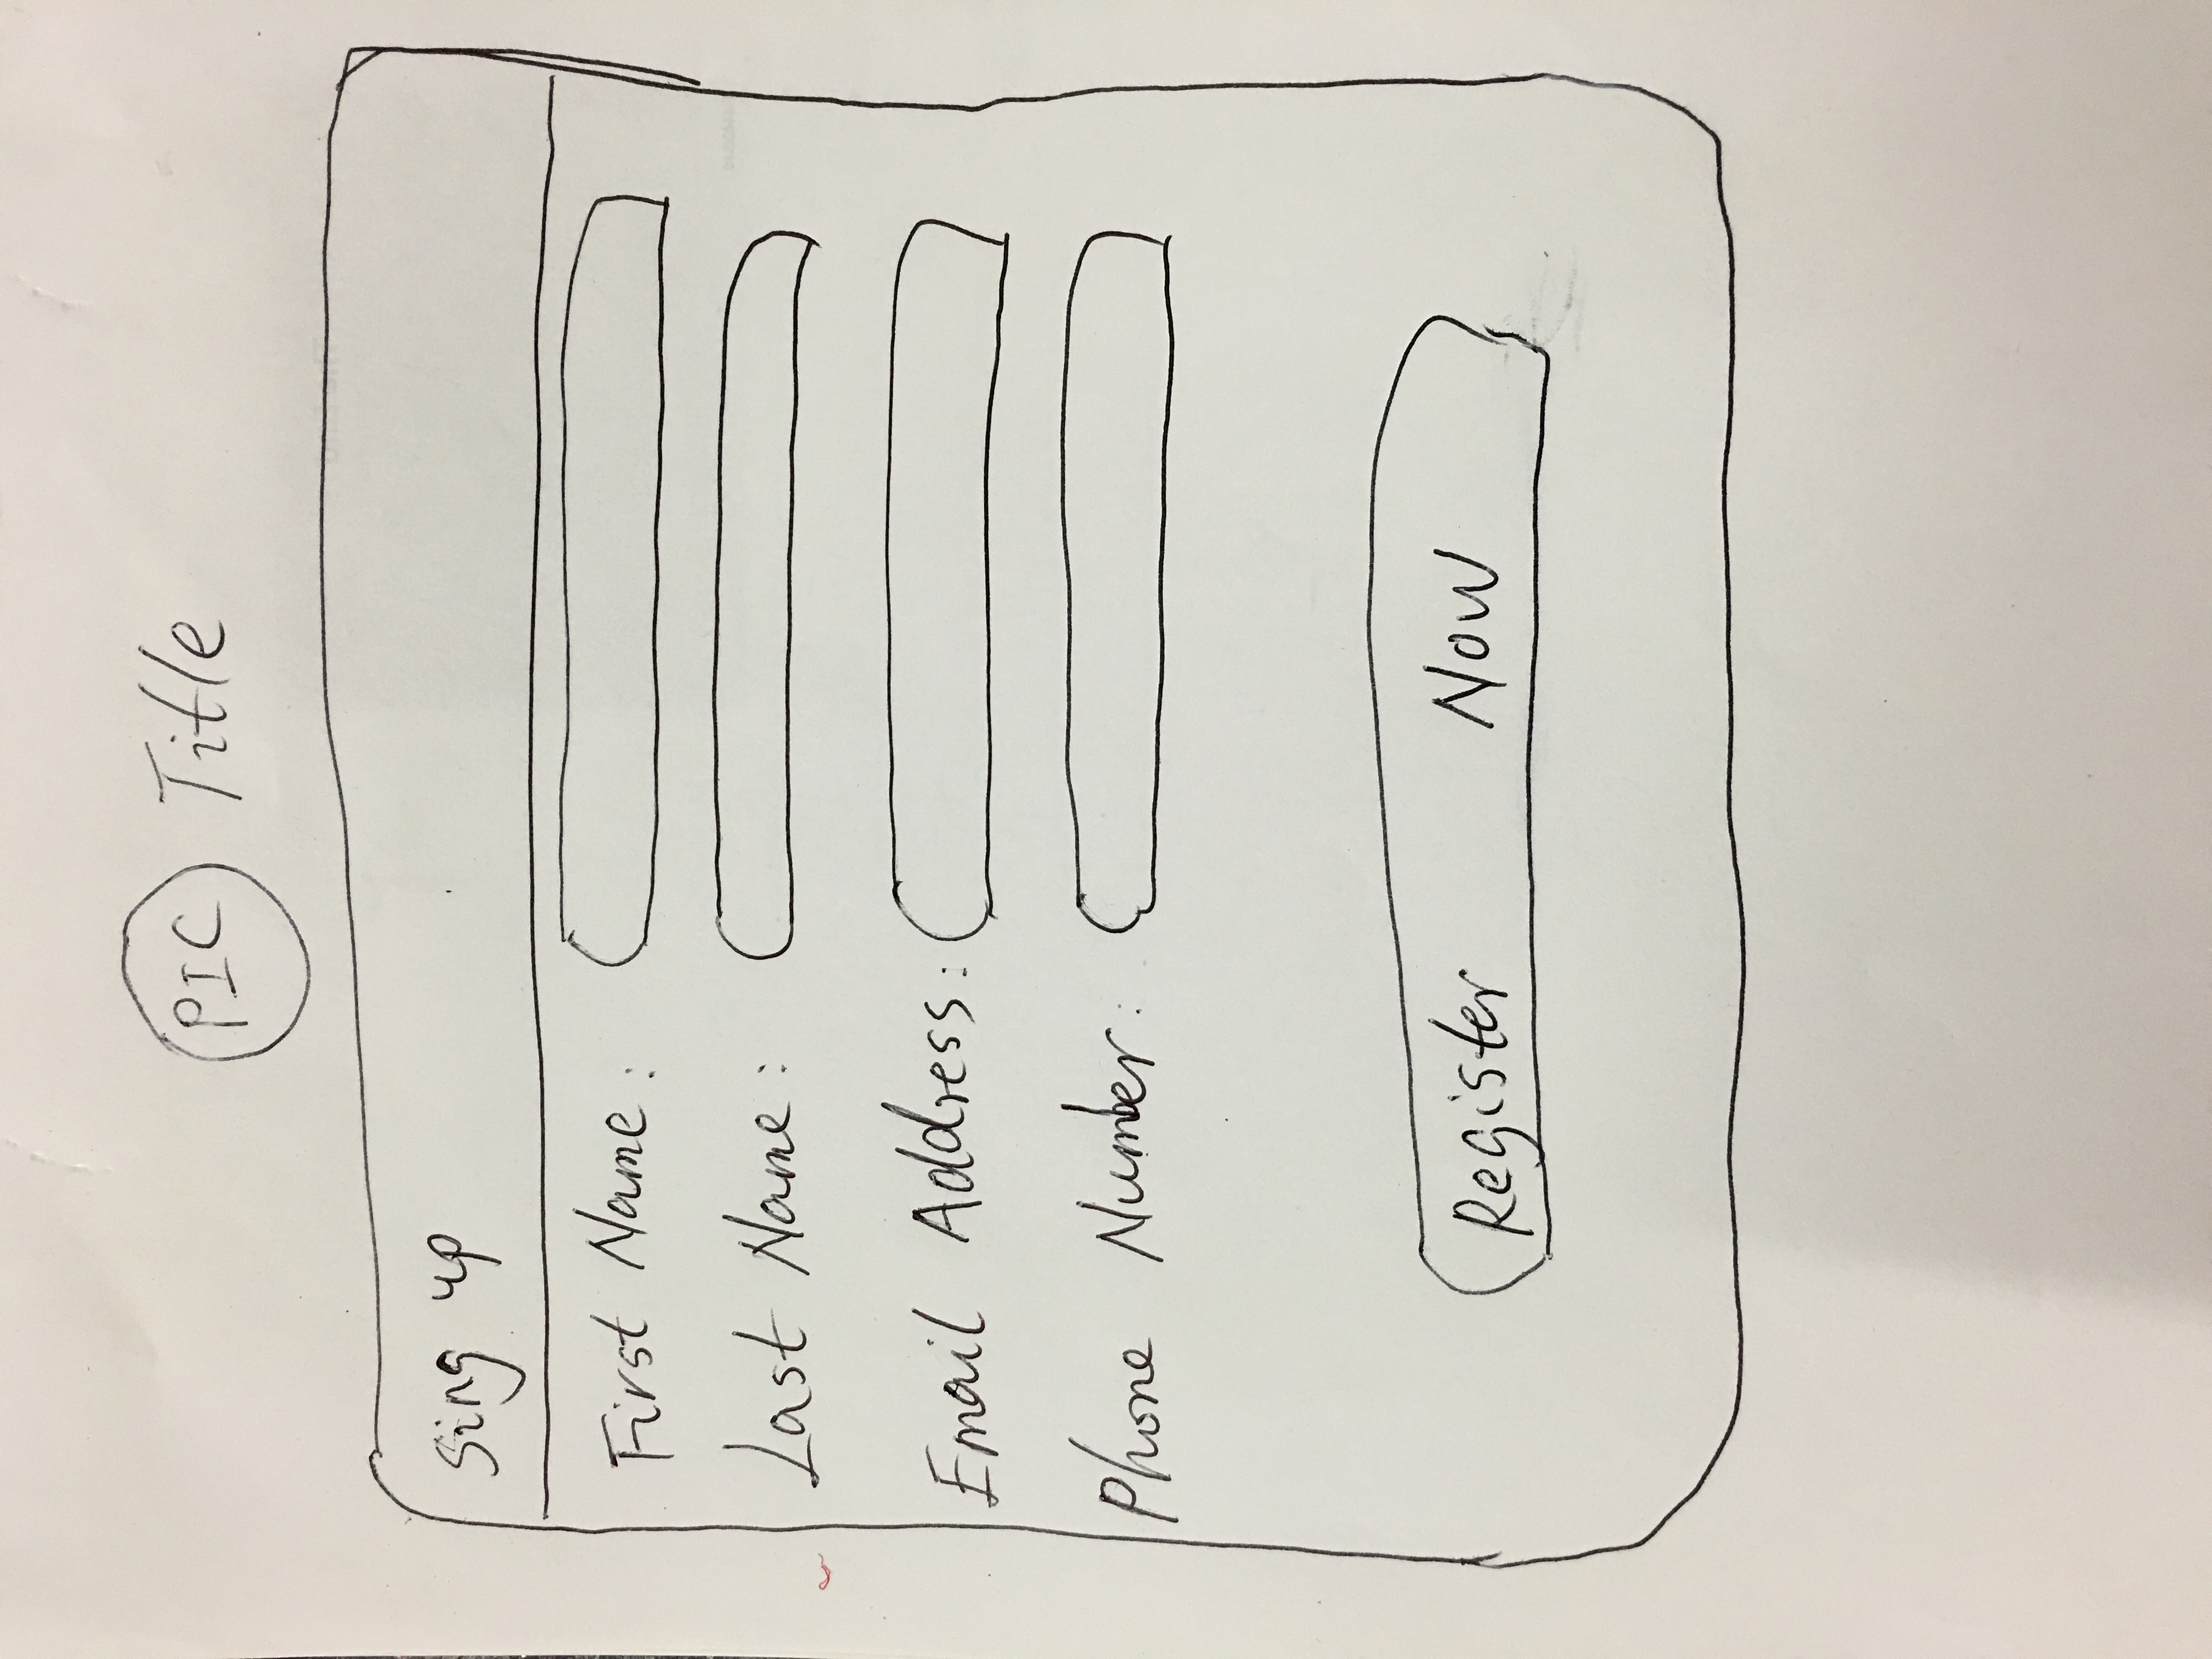 PIC Title
Sing up
First Name:
Last Name:
Email Address:
Phone Number:
Register Now